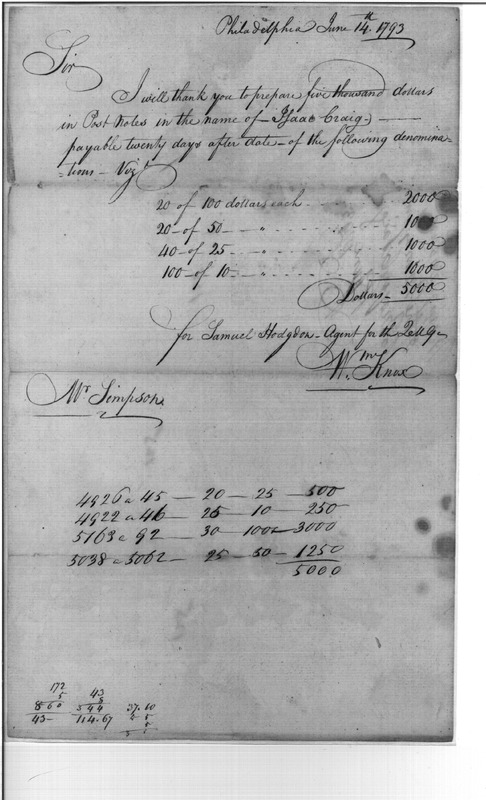 Philadelphia June 14th. 1793
Sir
I will thank you to prepare five thousand dollars
in Post Notes in the name of Isaac Craig
payable twenty days after date - of the following denomina-
-tions - Vizt
20 of 100 dollars each - - - - 2000
20 - of 50 - " - - - - 1000
40 - of 25 - " - - - - 1000
100 - of 10 - " - - - - 1000
Dollars - 5000
for Samuel Hodgdon - Agent for th QMG
Wm Knox
Mr Simpson
4926 a 45 - 20 - 25 - 500
4922 a 46 - 25 - 10 - 250
5163 a 92 - 30 - 100 - 3000
5038 a 5062 - 25 - 50 - 1250
5000
172 43
5 8 37.10
860 344
43 - 114.67